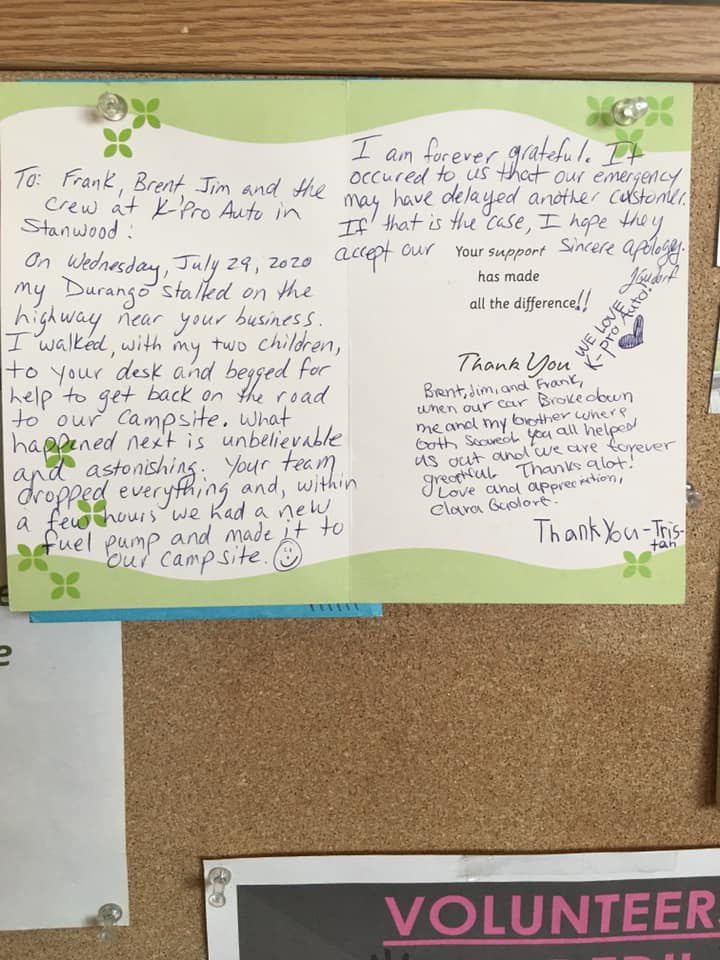 To: Frank, Brent Jim and the
crew at K-Pro Auto in
Stanwood:
On Wednesday, July 29, 2020
my Durango stalled on the
highway near your business.
I walked, with my two children,
to your desk and begged for
help to get back on the road
to our campsite. What
happened next is unbelievable
and astonishing. Your team
dropped everything and, within
a few hours we had a new
fuel pump and made it to
our campsite.
I am forever grateful. It
occured to us that our emergency
may have delayed another customer.
If that is the case, I hope they
accept our sincere apology.
Your support
has made
all the difference!!
WE LOVE
K-pro Auto!
Thank You
Brent, Jim, and Frank,
when our car Broke down
me and my brother where
both scared you all helped
us out and we are forever
greatful. Thanks alot!
Love and appreciation,
Clara
Thank You-Tris-
tan
e
VOLUNTEER